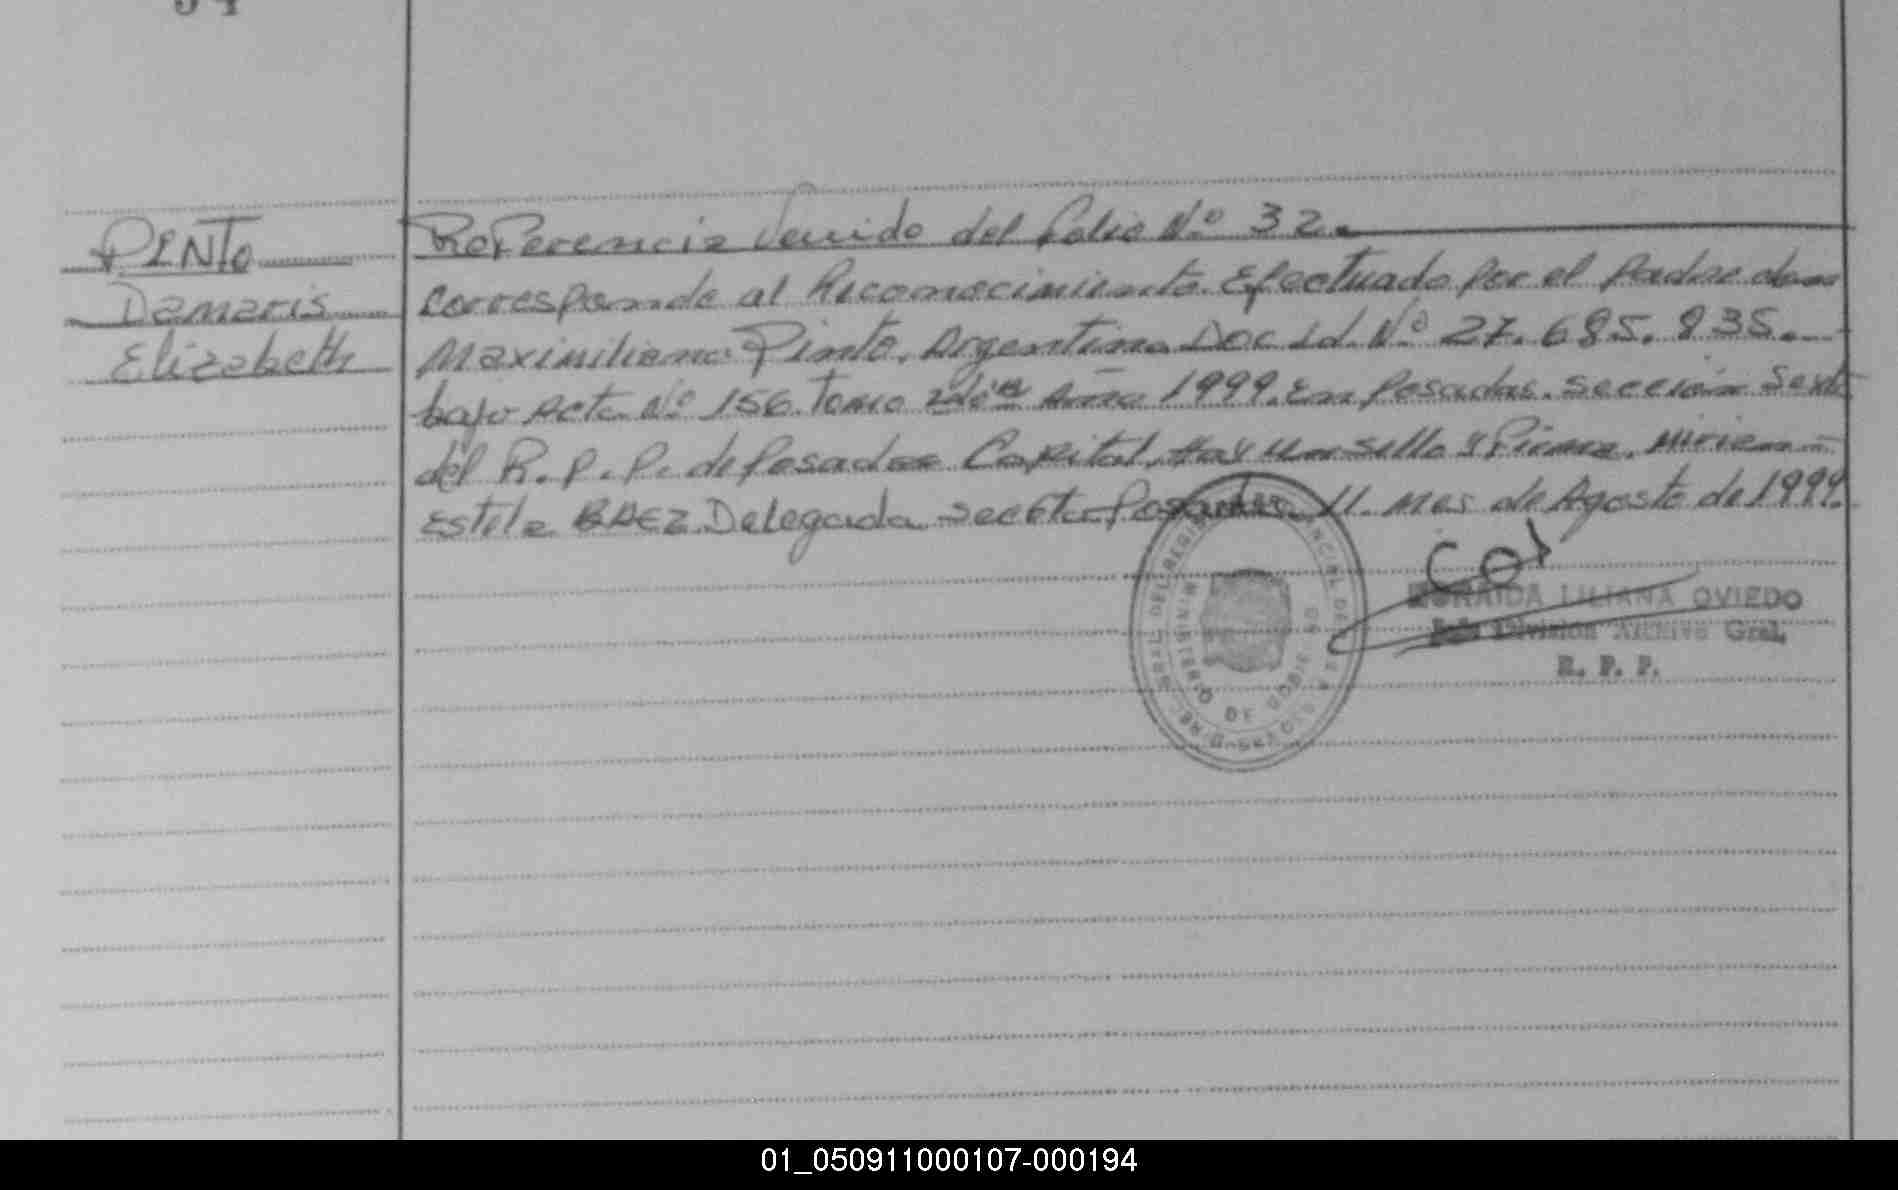 54
PINTO
Damaris
Elizabeth
Referencia Venido del folio N° 32.
corresponde al Reconocimiento Efectuado por el Padre don
Maximiliano Pinto, Argentino Doc Id. N° 27.685.835.
bajo Acta N° 156 Tomo Año 1999. En Posadas. Sección Sexta
del R. P. P. de Posadas Capital, Hay un sello y Firma. Miriam
Estela BAEZ Delegada Sec 6ta Posadas 11. Mes de Agosto de 1999.
LILIANA OVIEDO
Jefe División Archivo Gral.
R. P. P.
MINISTERIO DE GOBIERNO
01_050911000107-000194